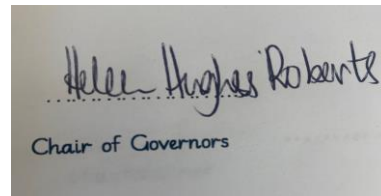 Helen Hughes Roberts
Chair of Governors